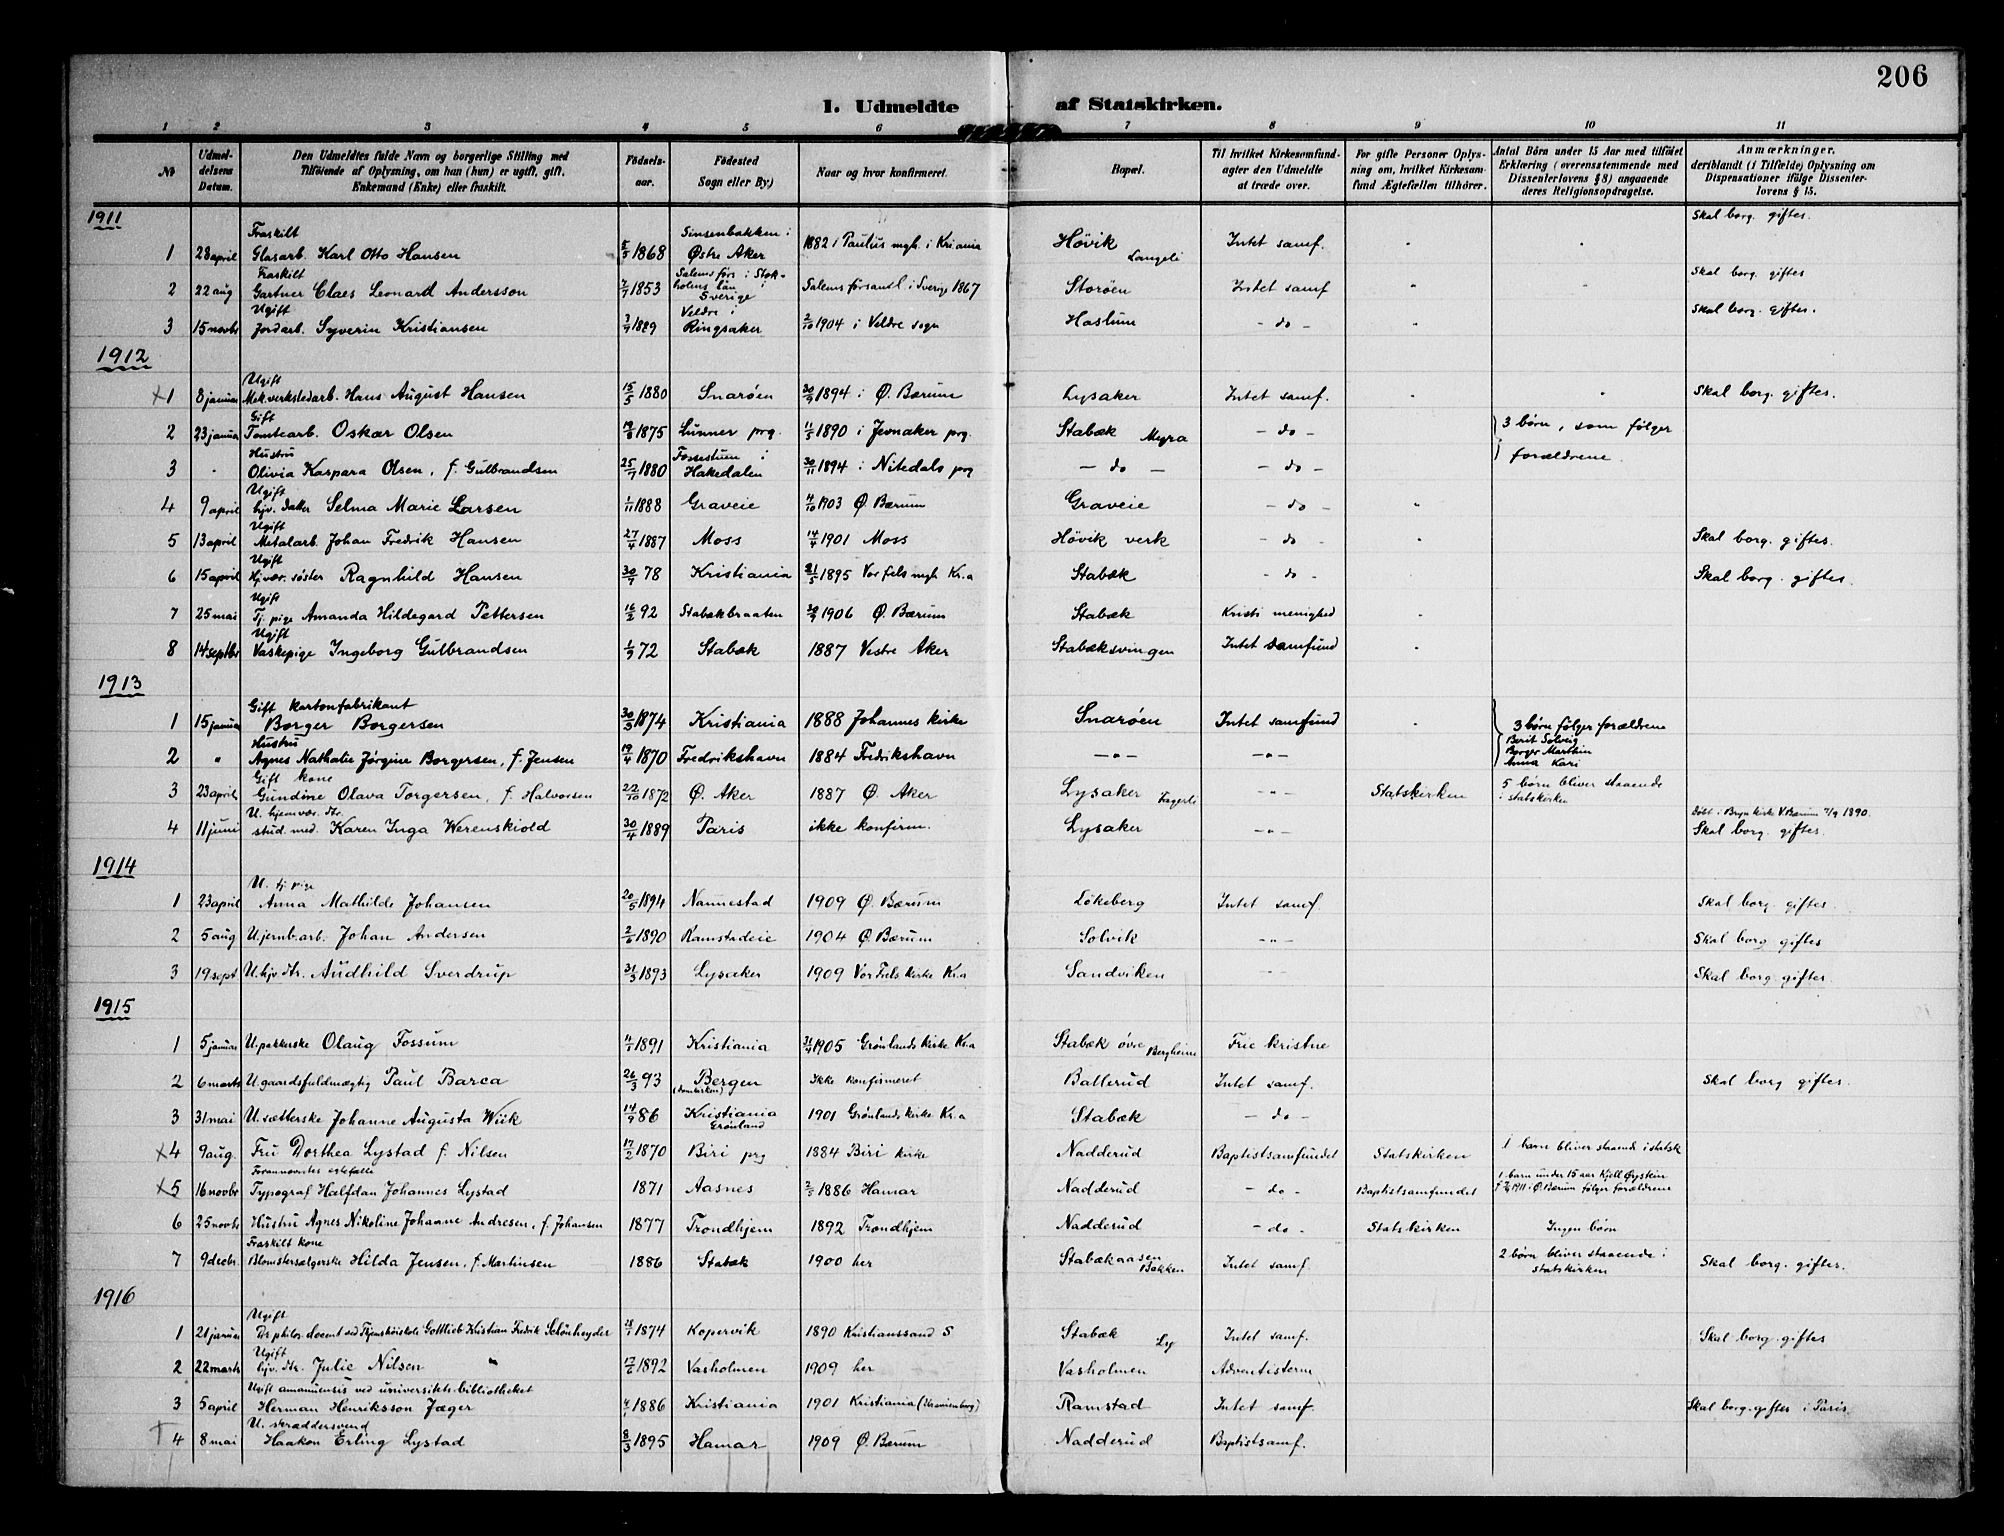 206
I. Udmeldte af Statskirken.
1 2 3 4 5 6 7 8 9 10 11
No
Udmel-
delsens
Datum.
Den Udmeldtes fulde Navn og borgerlige Stilling med
Tilföiende af Oplysning, om han (hun) er ugift, gift,
Enkemand (Enke) eller fraskilt.
Födsels-
aar.
Födested
Sogn eller By)
Naar og hvor konfirmeret.
Bopæl.
Til hvilket Kirkesamfund-
agter den Udmeldte
at træde over.
For gifte Personer Oplys-
ning om, hvilket Kirkesam-
fund Ægtefællen tilhörer.
Antal Börn under 15 Aar med tilföiet
Erklæring (overensstemmende med
Dissenterlovens § 8) angaaende
deres Religionsopdragelse.
Anmærkninger.
deriblandt (i Tilfælde) Oplysning om
Dispensationer ifölge Dissenter-
lovens § 15.
1911
Fraskilt Sinsenbakken i Skal borg. giftes.
1 28 april Glasarb. Karl Otto Hansen 5/5 1868 Østre Aker 1882 i Paulus mgh. i Kriania Høvik Langeli Intet samf. "
Fraskilt Salems førs i Stok- Skal borg. giftes
2 22 aug Gartner Claes Leonard Andersson 2/7 1853 holms län i Sverige Salems församl i Sverige 1867 Storøen Intet samf "
Ugift Veldre i Skal borg. giftes.
3 15 novbr Jordarb. Syverin Kristiansen 3/9 1889 Ringsaker 2/10 1904 i Veldre sogn Haslum - do - "
1912
Ugift
x1 8 januar Mek.verkstedarb. Hans August Hansen 15/5 1880 Snarøen 30/9 1894 i Ø. Bærum Lysaker Intet samf. Skal borg. giftes.
Gift
2 23 januar Tomtearb. Oskar Olsen 1875 Lunner prg. 11/5 1890 i Jevnaker prg. Stabæk Myra - do - 3 børn, som følger
Hustru Fossestuen i
3 " Olivia Kaspara Olsen, f. Gulbrandsen 25/7 1880 Hakedalen 30/11 1894 i Nitedals prg - do - - do - forældrene.
Ugift
4 9 april hjv. datter Selma Marie Larsen 1/11 1888 Graveie 4/10 1903 Ø. Bærum Graveie - do - "
Ugift
5 13 april Metalarb. Johan Fredrik Hansen 27/4 1887 Moss 14/4 1901 Moss Høvik verk - do - Skal borg. giftes.
Ugift
6 15 april Hjvær. søster Ragnhild Hansen 30/7 78 Kristiania 21/5 1895 Vor fels mgh Kr.a Stabæk - do - Skal borg. giftes.
Ugift
7 25 mai Tj. pige Amanda Hildegard Pettersen 16/2 92 Stabækbraaten 30/9 1906 Ø. Bærum Stabæk Kristi menighed "
Ugift
8 14 septbr Vaskepige Ingeborg Gulbrandsen 1/9 72 Stabæk 1887 Vestre Aker Stabæksvingen Intet samfund "
1913
Gift kartonfabrikant
1 15 januar Borger Borgersen 30/3 1874 Kristiania 1888 Johannes kirke Snarøen Intet samfund " 3 børn følger forældrene
Hustru Berit Solveig
2 " Agnes Nathalie Jørgine Borgersen, f. Jensen 19/4 1870 Fredrikshavn 1884 Fredrikshavn - " - - " - Borger Marthin
Anna Kari
Gift kone
3 23 april Gundine Olava Torgersen, f. Halvorsen 22/10 1872 Ø. Aker 1887 Ø. Aker Lysaker Fagerli - " - Statskirken 5 børn bliver staaende
i statskirken
U. hjemvær. dtr. Døbt i Bryn kirke V. Bærum 7/9 1890.
4 11 juni stud. med. Karen Inga Werenskiold 30/4 1889 Paris ikke konfirm. Lysaker - " - Skal borg. giftes.
1914
U. tj. pige
1 23 april Anna Mathilde Johansen 20/5 1894 Nannestad 1909 Ø. Bærum Løkeberg Intet samf. Skal borg. giftes.
2 5 aug U. jernb.arb. Johan Andersen 2/6 1890 Ramstadeie 1904 Ø. Bærum Solvik - " - Skal borg giftes
3 19 sept U. hjv dtr. Audhild Sverdrup 31/3 1893 Lysaker 1909 Vor Frels kirke Kr.a Sandviken - - Skal borg. giftes.
1915
1 5 januar U. pakkerske Olaug Fossum 1891 Kristiania 1905 Grønlands kirke Kr.a Stabæk øvre Bergheim Frie kristne
2 6 marts U. gaardsfuldmægtig Paul Barca 26/3 93 Bergen (domkirken) Ikke konfirmeret Ballerud Intet samf. Skal borg giftes.
3 31 mai U. sætterske Johanne Augusta Wiik 14/9 86 Kristiania Grønland 1901 Grønlands kirke Kr.a Stabæk - do -
x4 9 aug. Fru Dorthea Lystad f. Nilsen 17/2 1870 Biri prg 1884 Biri kirke Nadderud Baptistsamfundet Statskirken 1 barn bliver staaende i statsk
Forannævntes ektefælle 1 barn under 15 aar Kjell Øystein
x5 16 novbr Typograf Halfdan Johannes Lystad 1871 Aasnes 2/5 1886 Hamar Nadderud - do - Baptistsamfundet 1911 i Ø. Bærum følger forældrene
6 25 novbr Hustru Agnes Nikoline Johanne Andresen, f. Johansen 1877 Trondhjem 1892 Trondhjem Nadderud - do - Statskirken Ingen børn
Fraskilt kone
7 9 decbr. Blomstersælgerske Hilda Jensen, f. Martinsen 1886 Stabæk 1900 her Stabækaasen Bakken Intet samf. 2 børn bliver staaende i
statskirken Skal borg. giftes.
1916
Ugift
1 21 januar Dr philos. docent ved Gottlieb Kristian Fredrik Schönheyder 1874 Kopervik 1890 Kristianssand S Stabæk Ly Intet samf. Skal borg. giftes
Ugift
2 22 marts hjv. dtr. Julie Nilsen " 17/6 1892 Vasholmen 1909 her Vasholmen Adventisterne
Ugift amanuensis ved universitetsbibliotheket
3 5 april Herman Henriksson Jæger 4/1 1886 Kristiania 1901 Kristiania (Uranienborg) Ramstad Intet samf. Skal borg. giftes i Paris
U. skræddersvend
4 8 mai Haakon Erling Lystad 8/3 1895 Hamar 1909 Ø. Bærum Nadderud Baptistsamf.